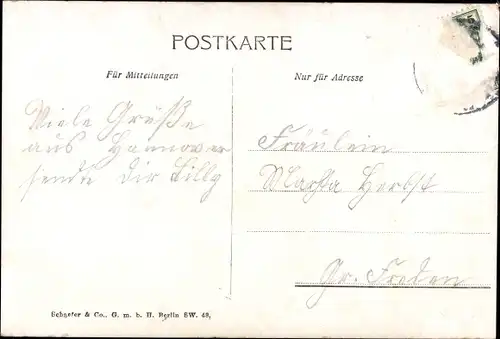 POSTKARTE
Für Mitteilungen
Nur für Adresse
Viele Grüße
aus Hannover
sendet Dir Lilly
Fräulein
Martha Herbst
Gr. Freden
Schaefer & Co., G. m. b. H. Berlin SW. 48,